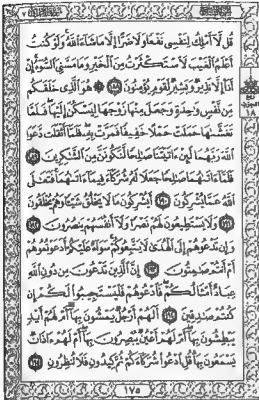 قُل لَّآ أَمْلِكُ لِنَفْسِى نَفْعًا وَلَا ضَرًّا إِلَّا مَا شَآءَ ٱللَّهُ وَلَوْ كُنتُ
أَعْلَمُ ٱلْغَيْبَ لَٱسْتَكْثَرْتُ مِنَ ٱلْخَيْرِ وَمَا مَسَّنِىَ ٱلسُّوٓءُ إِنْ
أَنَا۠ إِلَّا نَذِيرٌ وَبَشِيرٌ لِّقَوْمٍ يُؤْمِنُونَ ١٨٨ ۞ هُوَ ٱلَّذِى خَلَقَكُم
مِّن نَّفْسٍ وَٰحِدَةٍ وَجَعَلَ مِنْهَا زَوْجَهَا لِيَسْكُنَ إِلَيْهَا فَلَمَّا
تَغَشَّىٰهَا حَمَلَتْ حَمْلًا خَفِيفًا فَمَرَّتْ بِهِۦ فَلَمَّآ أَثْقَلَت دَّعَوَا
ٱللَّهَ رَبَّهُمَا لَئِنْ ءَاتَيْتَنَا صَٰلِحًا لَّنَكُونَنَّ مِنَ ٱلشَّٰكِرِينَ ١٨٩
فَلَمَّآ ءَاتَىٰهُمَا صَٰلِحًا جَعَلَا لَهُۥ شُرَكَآءَ فِيمَآ ءَاتَىٰهُمَا فَتَعَٰلَى
ٱللَّهُ عَمَّا يُشْرِكُونَ ١٩٠ أَيُشْرِكُونَ مَا لَا يَخْلُقُ شَيْـًٔا وَهُمْ يُخْلَقُونَ
١٩١ وَلَا يَسْتَطِيعُونَ لَهُمْ نَصْرًا وَلَآ أَنفُسَهُمْ يَنصُرُونَ ١٩٢
وَإِن تَدْعُوهُمْ إِلَى ٱلْهُدَىٰ لَا يَتَّبِعُوكُمْ سَوَآءٌ عَلَيْكُمْ أَدَعَوْتُمُوهُمْ
أَمْ أَنتُمْ صَٰمِتُونَ ١٩٣ إِنَّ ٱلَّذِينَ تَدْعُونَ مِن دُونِ ٱللَّهِ
عِبَادٌ أَمْثَالُكُمْ فَٱدْعُوهُمْ فَلْيَسْتَجِيبُوا۟ لَكُمْ إِن
كُنتُمْ صَٰدِقِينَ ١٩٤ أَلَهُمْ أَرْجُلٌ يَمْشُونَ بِهَآ أَمْ لَهُمْ أَيْدٍ
يَبْطِشُونَ بِهَآ أَمْ لَهُمْ أَعْيُنٌ يُبْصِرُونَ بِهَآ أَمْ لَهُمْ ءَاذَانٌ
يَسْمَعُونَ بِهَا قُلِ ٱدْعُوا۟ شُرَكَآءَكُمْ ثُمَّ كِيدُونِ فَلَا تُنظِرُونِ ١٩٥
١٧٥